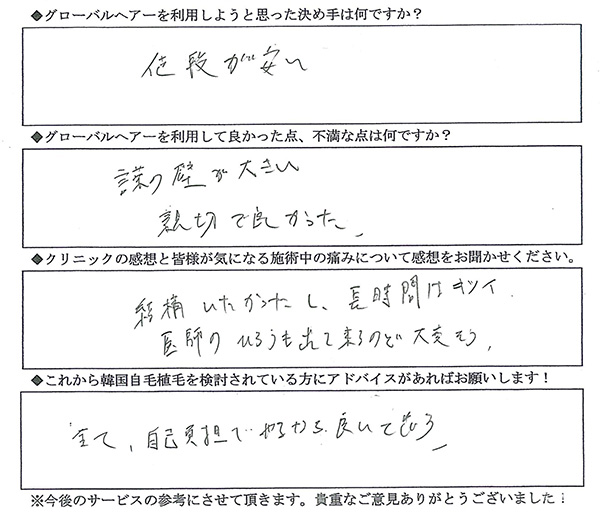 ◆グローバルヘアーを利用しようと思った決め手は何ですか？
値段が安い
◆グローバルヘアーを利用して良かった点、不満な点は何ですか？
言葉の壁が大きい
親切で良かった
◆クリニックの感想と皆様が気になる施術中の痛みについて感想をお聞かせください。
結構いたかったし、長時間はキツイ．
医師のひろうも出て来るので大変そう，
◆これから韓国自毛植毛を検討されている方にアドバイスがあればお願いします！
全て、自己負担でやるから良いと思う
※今後のサービスの参考にさせて頂きます。貴重なご意見ありがとうございました！